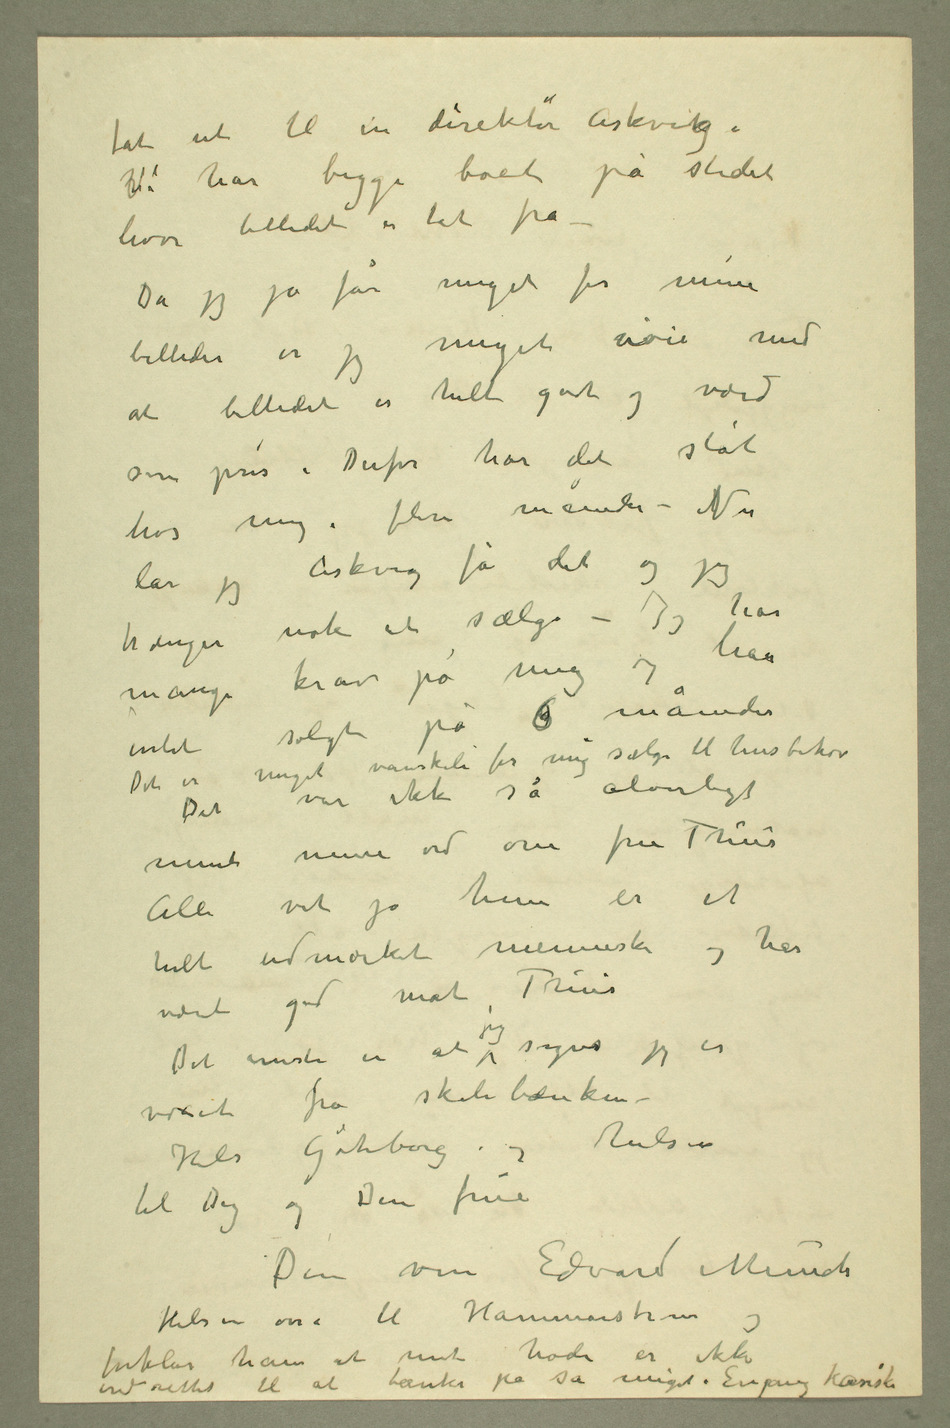 tat ut til en direktör Askvig.
Vi har begge boet på stedet
hvor billedet er tat fra –
Da jeg jo får meget for mine
billeder er jeg meget nöie med
at billedet er helt godt og værd
sin pris. Derfor har det ståt
hos mig i flere måneder – Nu
lar jeg Askvig få det og jeg
trænger nok at sælge – Jeg har
mange krav på mig og har
intet solgt på 6 måneder
Det er meget vanskeli for mig sælge til husbehov
Det var ikke så alvorligt
mente mine ord om fru Thiis
Alle vet jo hun er et
helt udmærket menneske og har
vært god mot Thiis
Det eneste er at jeg synes jeg er
voxet fra skolebænken –
Hils Göteborg. og hilsen
til Dig og Din frue
Din ven Edvard Munch
Hilsen også til Hammarström og
forklar ham at mit hode er ikke
indrettet til at tænke på så meget. Engang kanske